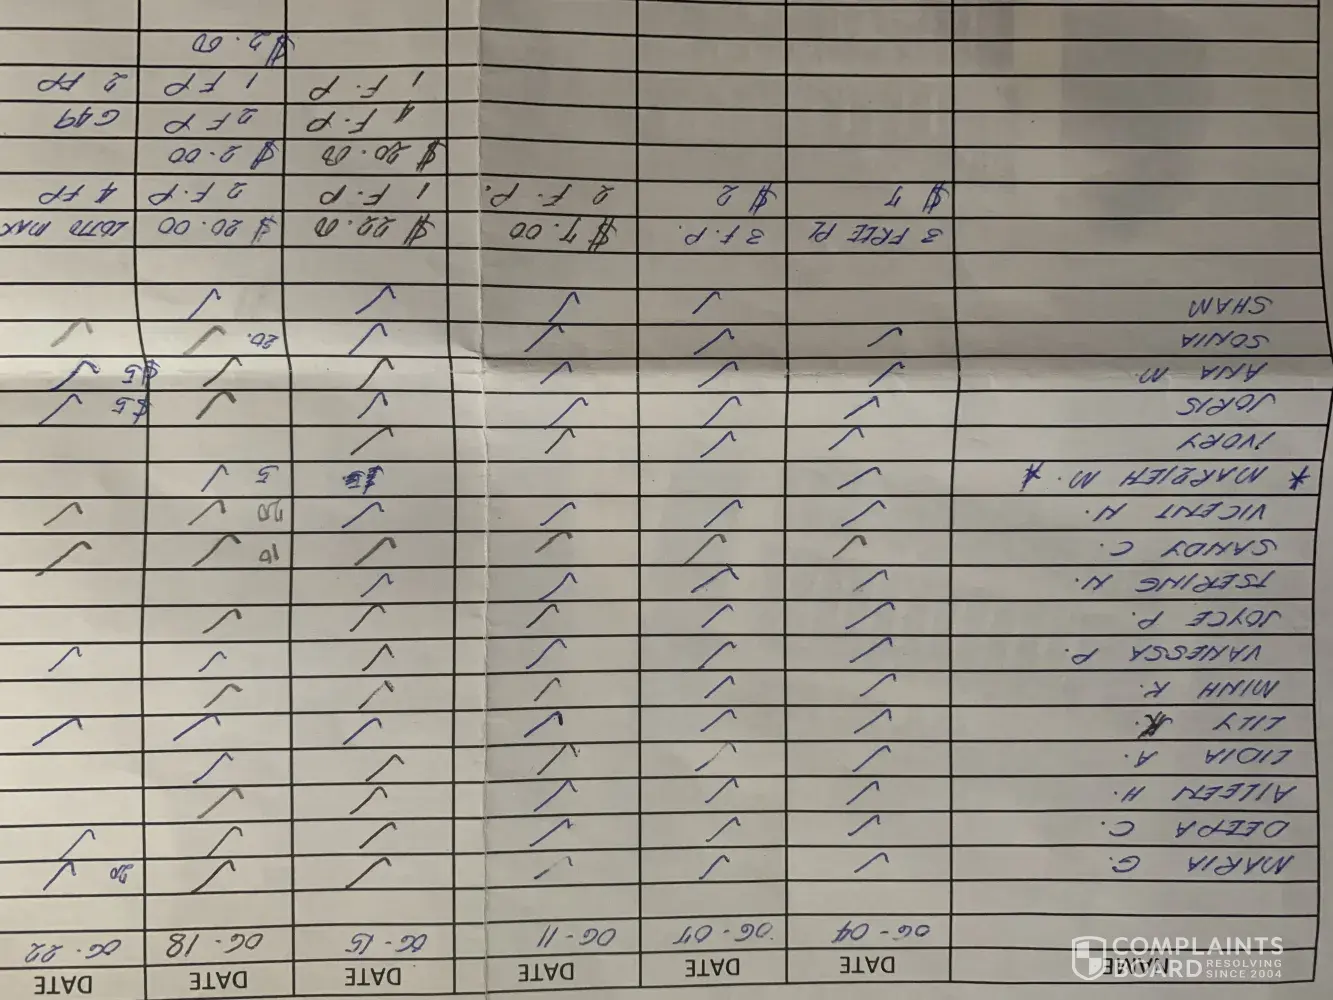 NAME DATE DATE DATE DATE DATE DATE
06-04 06-07 06-11 06-15 06-18 06-22
MARIA G. 20
DEEPA C.
AILEEN H.
LIDIA A.
LILY K.
MINH K.
VANESSA P.
JOYCE P.
TSERING N.
SANDY C. 10
VICENT N. 20
* MARZIEH M. * 5
IVORY
JORIS $5
ANA M. $5
SONIA 20.
SHAM
3 FREE PL 3 F.P. $7.00 $22.00 $20.00 LOTTO MAX
$7 $2 2 F.P. 1 F.P 2 F.P 4 FP
$20.00 $2.00
4 F.P 2 FP G49
1 F.P 1 FP 2 FP
$2.00
COMPLAINTS
BOARD RESOLVING
SINCE 2004